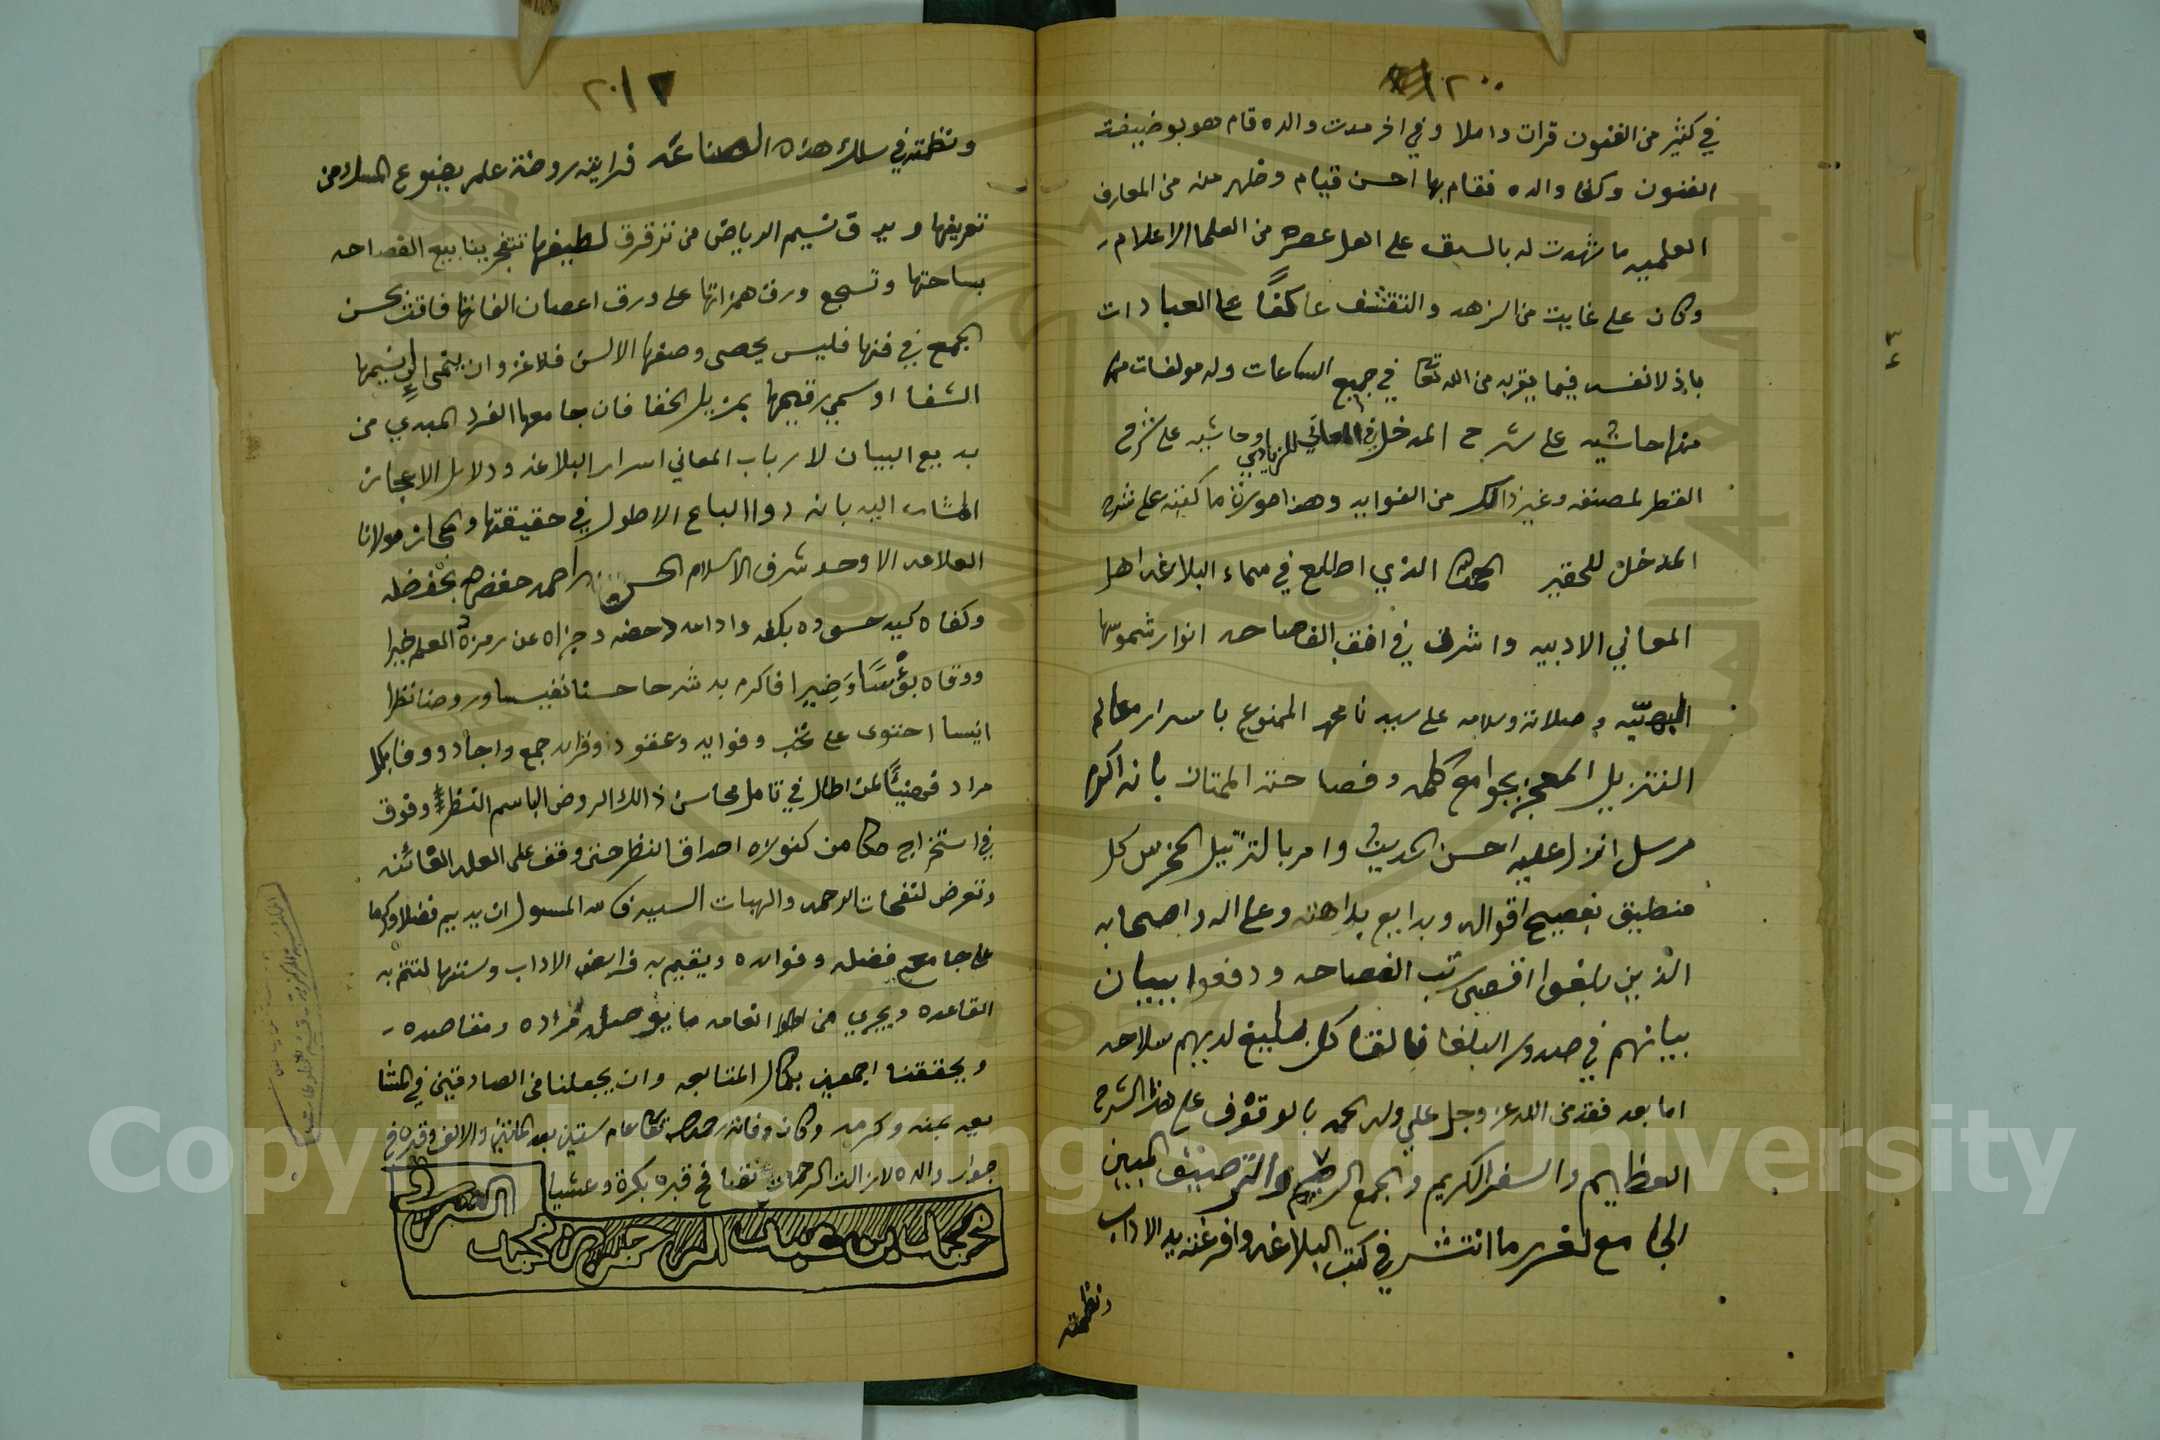 ٢٠٠
في كثير من الفنون قرات واملا وفي اخر مدت والده قام هو بوضيفت
الفنون وكفا والده فقام بها احسن قيام وظهر منه من المعارف
العلميه ما شهدت له بالسبق على اهل عصره من العلما الاعلام
وكان على غايت من الزهد والتقشف عاكفًا على العبادات
باذلا نفسه فيما يقربه من الله تعالى في جميع الساعات وله مولفات منها
منها حاشيه على شرح المدخل في المعاني للزيادي وحاشيه على شرح
القطر لمصنفه وغير ذالك من الفوايد وهذا صورة ما كتبته على شرح
المدخل للحقير الحمد لله الذي اطلع في سماء البلاغه اهل
المعاني الادبيه واشرق في افق الفصاحه انوار شموسها
البهيّه وصلاته وسلامه على سيدنا محمد الممنوح باسرار معالم
التنزيل المعجز بجوامع كلمه وفصاحته الممتاز بانه اكرم
مرسل انزل عليه احسن الحديث وامر بالترتيل المخرس كل
منطيق بفصيح اقواله وبدايع بداهته وعلى اله واصحابه
الذين بلغوا اقصى رتب الفصاحه ودفعوا ببيان
بيانهم في صدور البلغا فالقا كل بليغ لديهم سلاحه
اما بعد فقد من الله عز وجل علي وله الحمد بالوقوف على هذا الشرح
العظيم والسفر الكريم والجمع الرصين والترصيف المبين
الجامع لغرر ما انتثر في كتب البلاغه وافرغته يد الاداب
ونظمته
٢٠١
ونظمته في سلك هذه الصناعه فرايته روضة علم يضوع المسك من
تعريفها ويرق نسيم الرياض من ترقرق لطيفها تتفجر ينابيع الفصاحه
بساحتها وتسجع ورق همزاتها على ورق اغصان الفاتها فاقت بحسن
الجمع في فنها فليس يحصى وصفها الالسن فلا غرو ان ينتمى الى نسيمها
الشفا او سمي رقيمها بمزيل الخفا فان جامعها الفرد المبدي من
بديع البيان لارباب المعاني اسرار البلاغه ودلايل الاعجاز
المشار اليه بانه ذو الباع الاطول في حقيقتها والمجاز مولانا
العلامه الاوحد شرف الاسلام الحسن بن احمد حفضه بحفضه
وكفاه كيد حسوده بكفه وادامه لاحضه وجزاه عن زمرة العلم خيرا
ووقاه بؤسًا وَضيرا فاكرم به شرحا حسنا نفيسا وروضا نظرا
انيسا احتوى على نخب وفوايد وعقود وفرايد جمع واجاد ووفا بكل
مراد فهنيئًا لمن اطال في تامل محاسن ذالك الروض الباسم النظر وفوق
في استخراج مكامن كنوزه احداق النظر حتى وقف على العلم الفائت
وتعرض لنفحات الرحمه والهبات السنيه فالله المسول ان يديم فضلا وكرما
على جامع فضله وفوايده ويقيم به فرايض الاداب وسننها لتتم به
القاعده ويجري من انعامه ما يؤصل مراده ومقاصده
ويحققنا اجمعين بكمال المتابعه وان يجعلنا من الصادقين في المثا
بعه بمنه وكرمه وكانت وفاته رحمه الله تعالى عام ستين بعد المائتين والالف وقبره في
جوار والده لازالت الرحمات تصافح قبره بكرة وعشيا
محمد بن عبد الرحمن بن محمد
Copyright © King Saud University